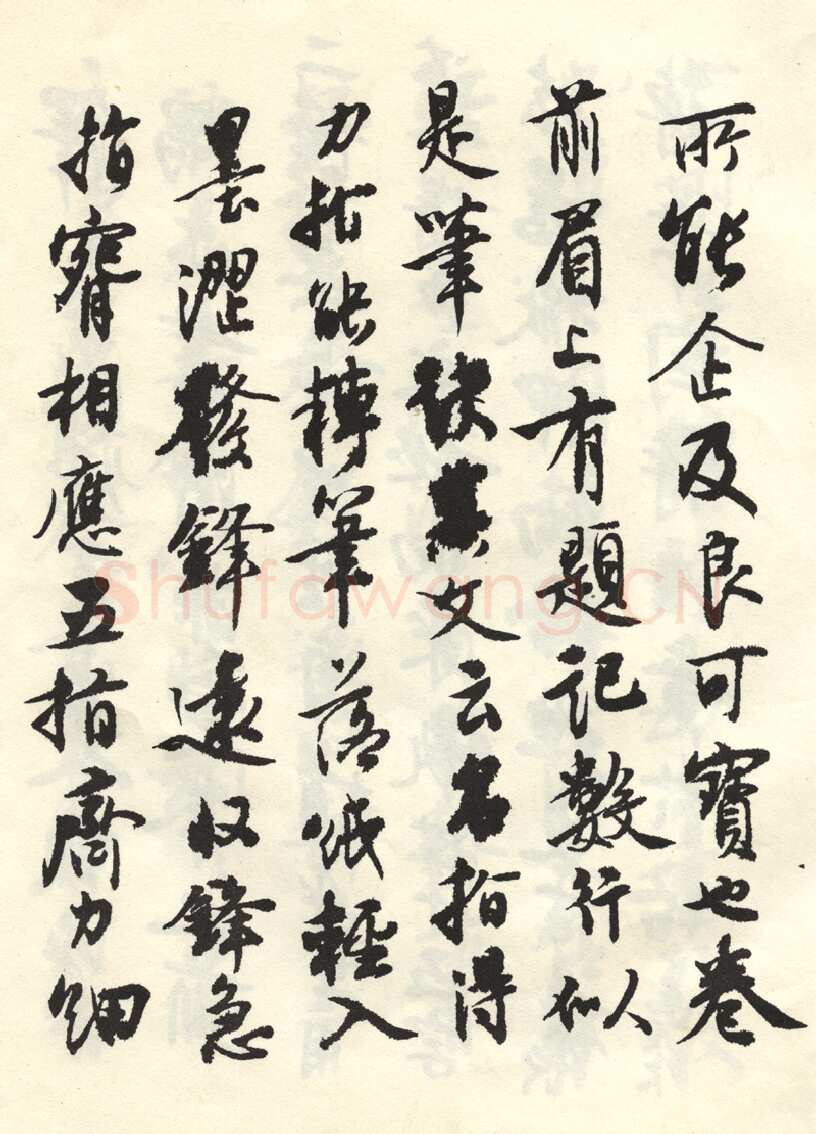 所能企及良可寶也卷
前眉上有題記數行似
是筆訣其文云名指得
力指能轉筆落紙輕入
墨澀發鋒遠收鋒急
指臂相應五指齊力細
Shufawang.CN